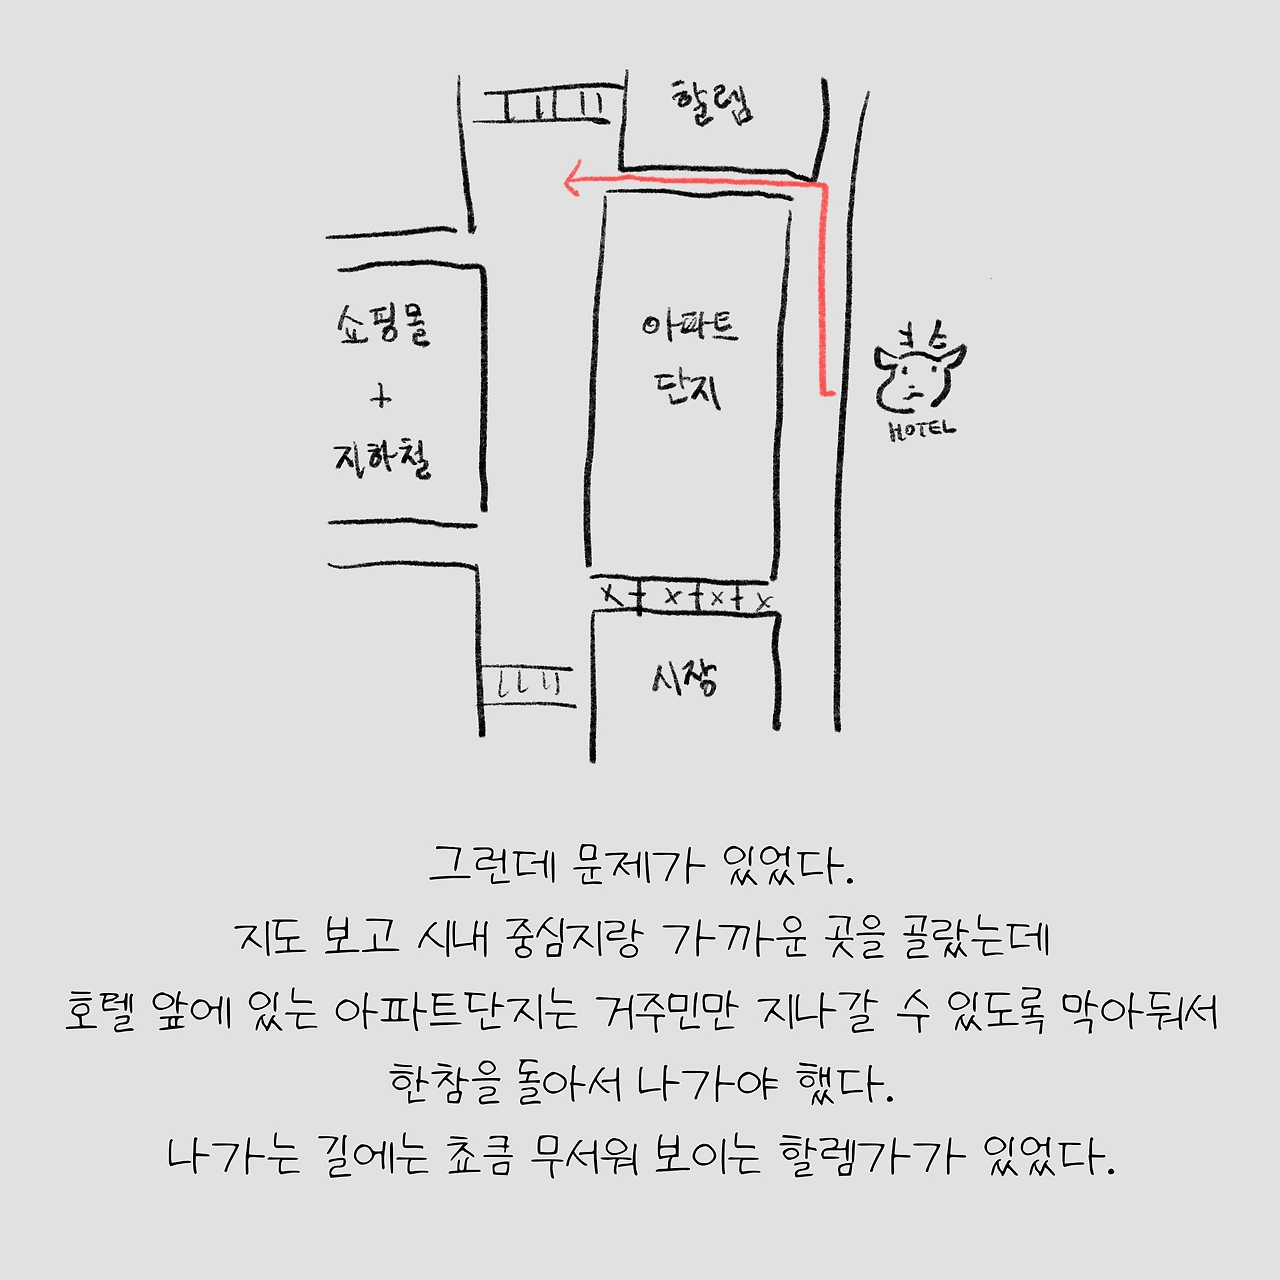 할렘
쇼핑몰
+
지하철
아파트
단지
HOTEL
시장
그런데 문제가 있었다.
지도 보고 시내 중심지랑 가까운 곳을 골랐는데
호텔 앞에 있는 아파트단지는 거주민만 지나갈 수 있도록 막아둬서
한참을 돌아서 나가야 했다.
나가는 길에는 쵸큼 무서워 보이는 할렘가가 있었다.